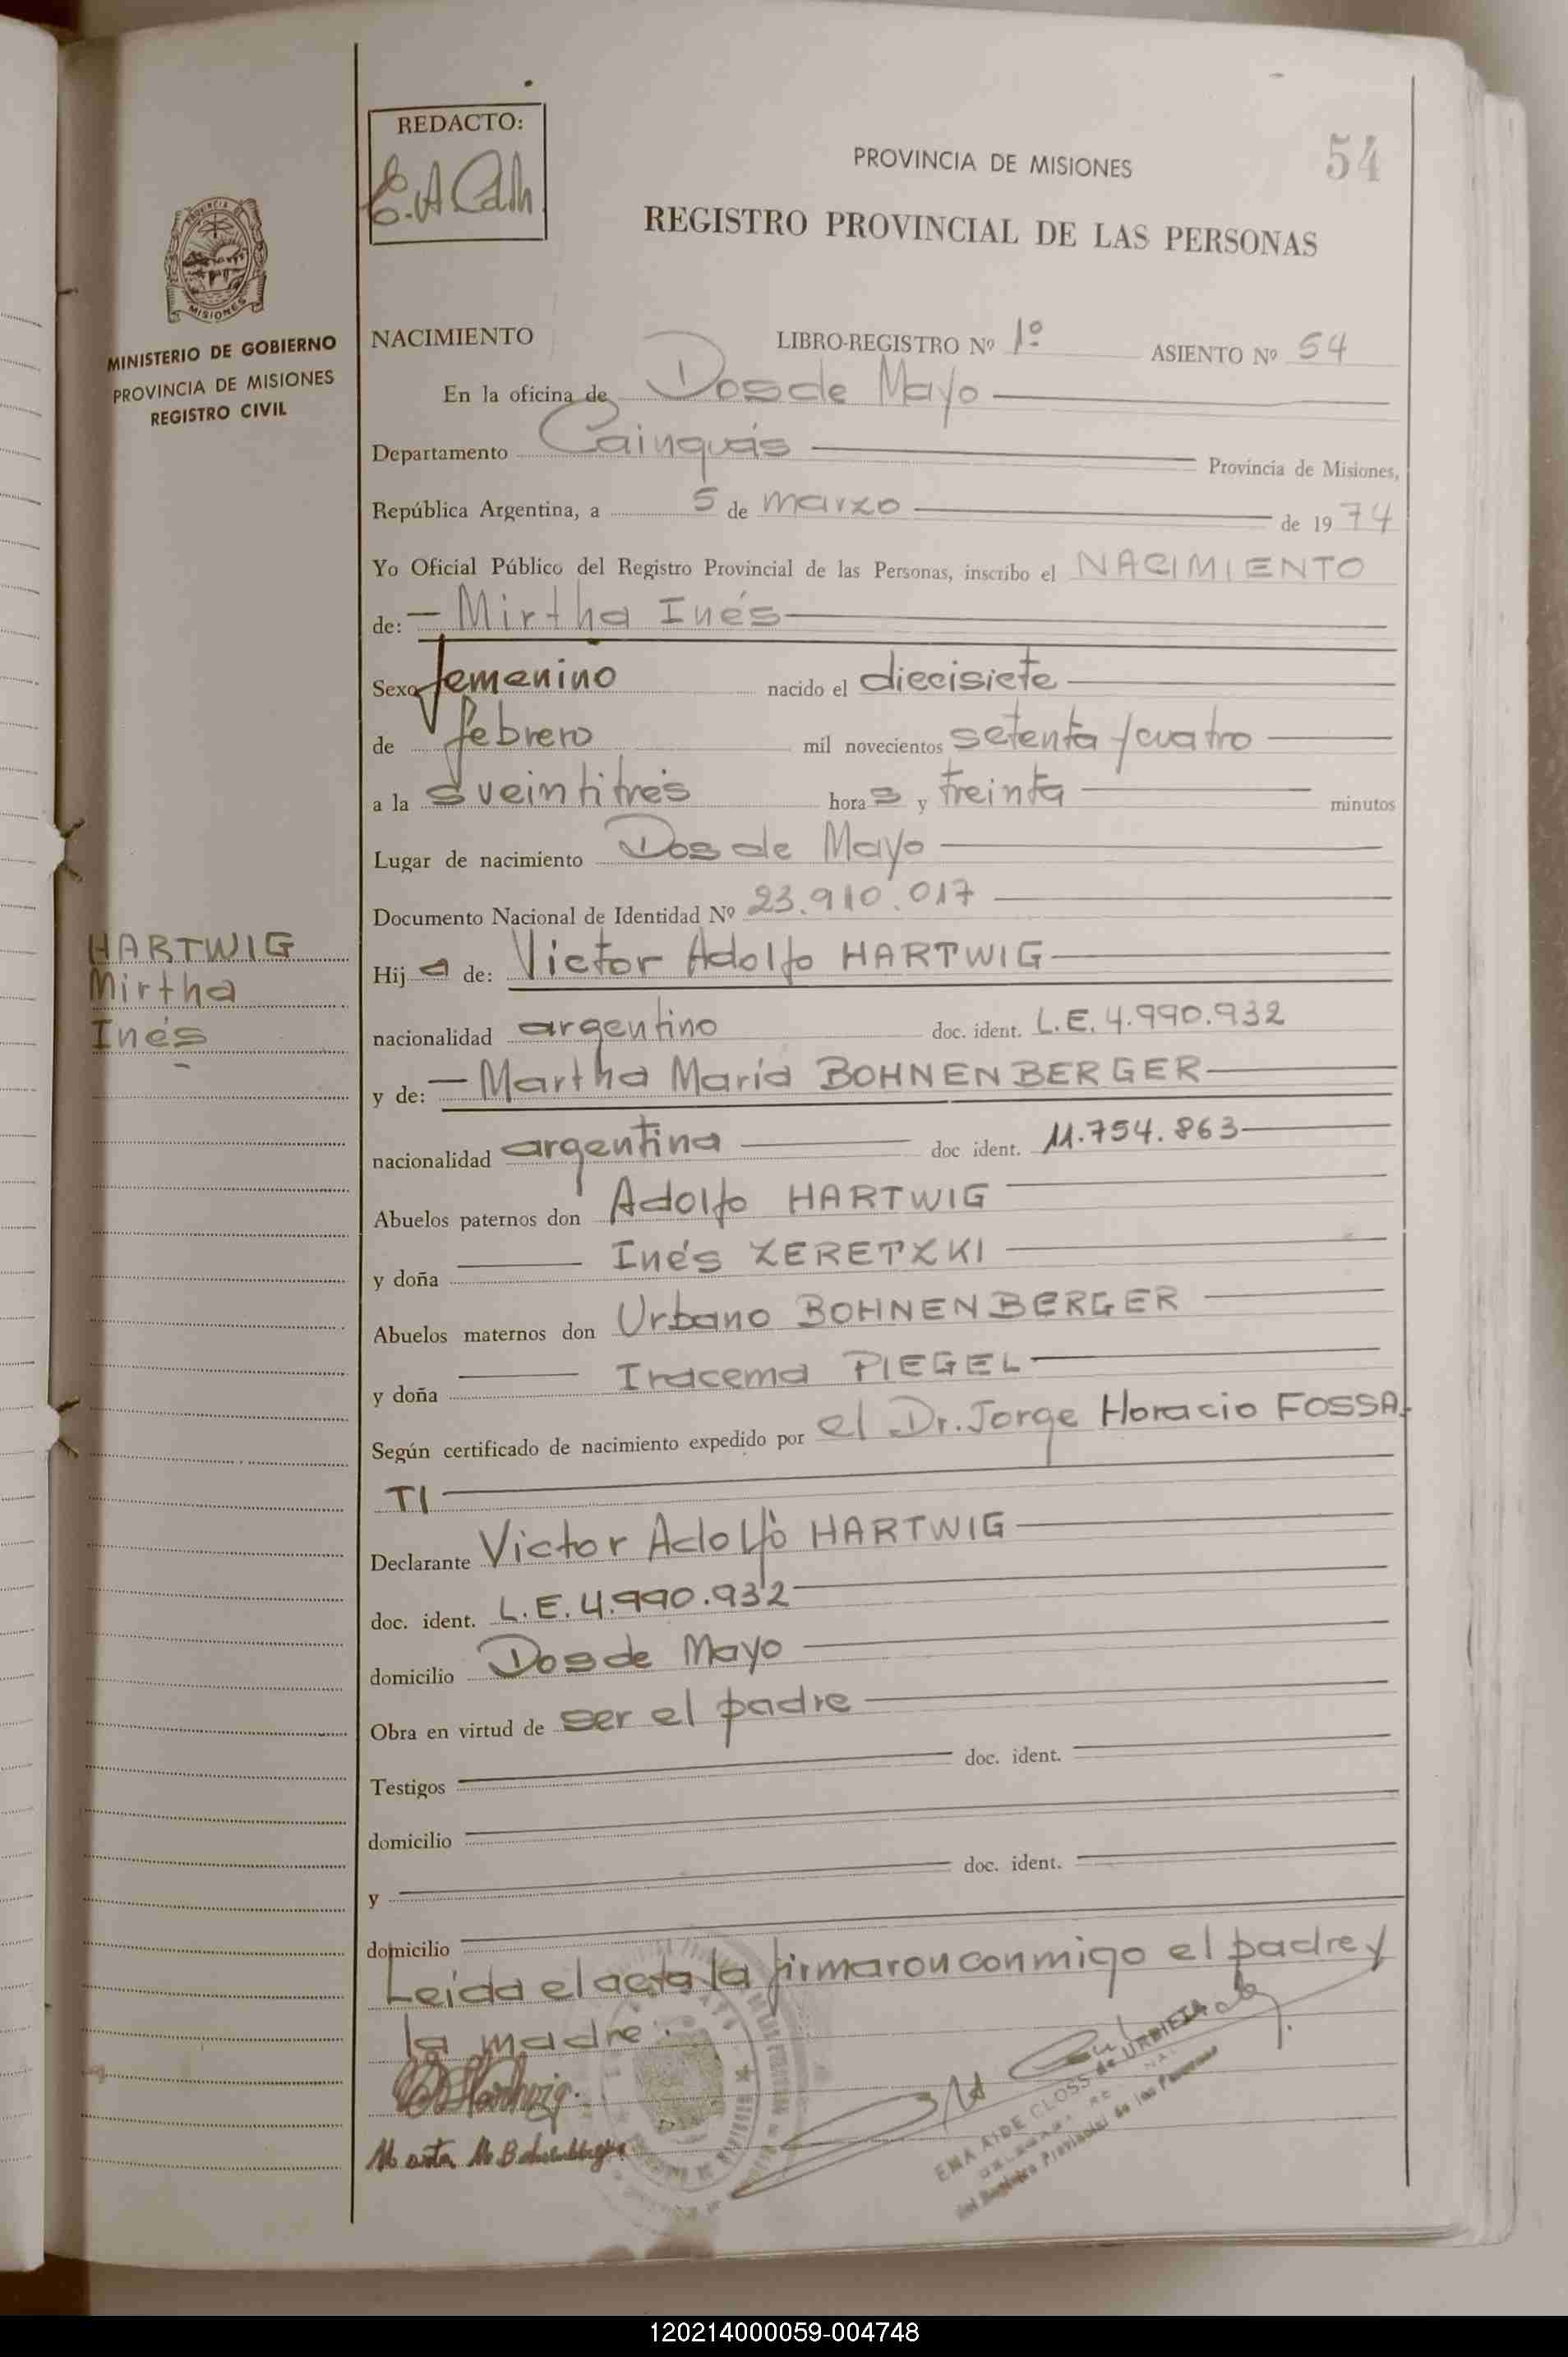 REDACTO:
PROVINCIA DE MISIONES
54
REGISTRO PROVINCIAL DE LAS PERSONAS
MISIONES
MINISTERIO DE GOBIERNO
PROVINCIA DE MISIONES
REGISTRO CIVIL
NACIMIENTO LIBRO-REGISTRO Nº 1º ASIENTO Nº 54
En la oficina de Dos de Mayo
Departamento Cainguás Provincia de Misiones,
República Argentina, a 5 de marzo de 1974
Yo Oficial Público del Registro Provincial de las Personas, inscribo el NACIMIENTO
de: Mirtha Inés
Sexo femenino nacido el diecisiete
de febrero mil novecientos setenta y cuatro
a la s veintitrés hora s y treinta minutos
Lugar de nacimiento Dos de Mayo
Documento Nacional de Identidad Nº 23.910.017
HARTWIG
Mirtha
Inés
Hij a de: Victor Adolfo HARTWIG
nacionalidad argentino doc. ident. L.E. 4.990.932
y de: Martha María BOHNENBERGER
nacionalidad argentina doc ident. 11.754.863
Abuelos paternos don Adolfo HARTWIG
y doña Inés ZERETZKI
Abuelos maternos don Urbano BOHNENBERGER
y doña Iracema PIEGEL
Según certificado de nacimiento expedido por el Dr. Jorge Horacio FOSSA-
TI
Declarante Victor Adolfo HARTWIG
doc. ident. L.E. 4.990.932
domicilio Dos de Mayo
Obra en virtud de ser el padre
Testigos doc. ident.
domicilio
y doc. ident.
domicilio
Leida el acta la firmaron conmigo el padre y
la madre.
ENA AIDE CLOSS de URRIETA
del Registro Provincial de las Personas
120214000059-004748